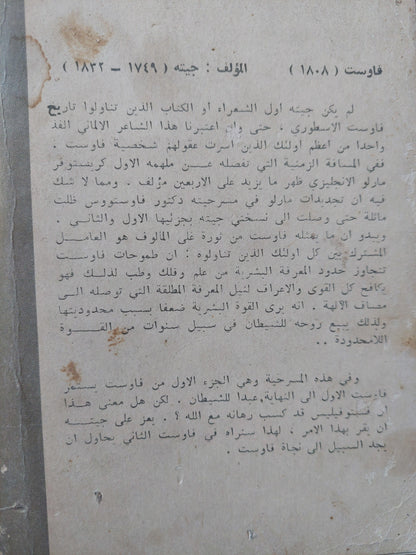 فاوست ( ١٨٠٨ ) المؤلف : جيته ( ١٧٤٩ – ١٨٣٢ )
لم يكن جيته اول الشعراء او الكتاب الذين تناولوا تاريخ
فاوست الاسطوري ، حتى وان اعتبرنا هذا الشاعر الالماني الفذ
واحدا من اعظم اولئك الذين اسرت عقولهم شخصية فاوست .
ففي المسافة الزمنية التي تفصله عن ملهمه الاول كريستوفر
مارلو الانجليزي ظهر ما يزيد على الاربعين مؤلف . ومما لا شك
فيه ان تجديدات مارلو في مسرحيته دكتور فاوستووس ظلت
ماثلة حتى وصلت الى نسختي جيته بجزئيها الاول والثاني .
ويبدو ان ما يمثله فاوست من ثورة على المألوف هو العامل
المشترك بين كل اولئك الذين تناولوه : ان طموحات فاوست
تتجاوز حدود المعرفة البشرية من علم وفلك وطب لذلك فهو
يكافح كل القوى والاعراف لنيل المعرفة المطلقة التي توصله الى
مصاف الآلهة . انه يرى القوة البشرية ضعفا بسبب محدوديتها
ولذلك يبيع روحه للشيطان في سبيل سنوات من القوة
اللامحدودة ..
وفي هذه المسرحية وهي الجزء الاول من فاوست يستمر
فاوست الاول الى النهاية عبدا للشيطان . لكن هل معنى هذا
ان مستوفيليس قد كسب رهانه مع الله ؟ . يعز على جيته
ان يقر بهذا الامر ، لهذا سنراه في فاوست الثاني يحاول ان
يجد السبيل الى نجاة فاوست .